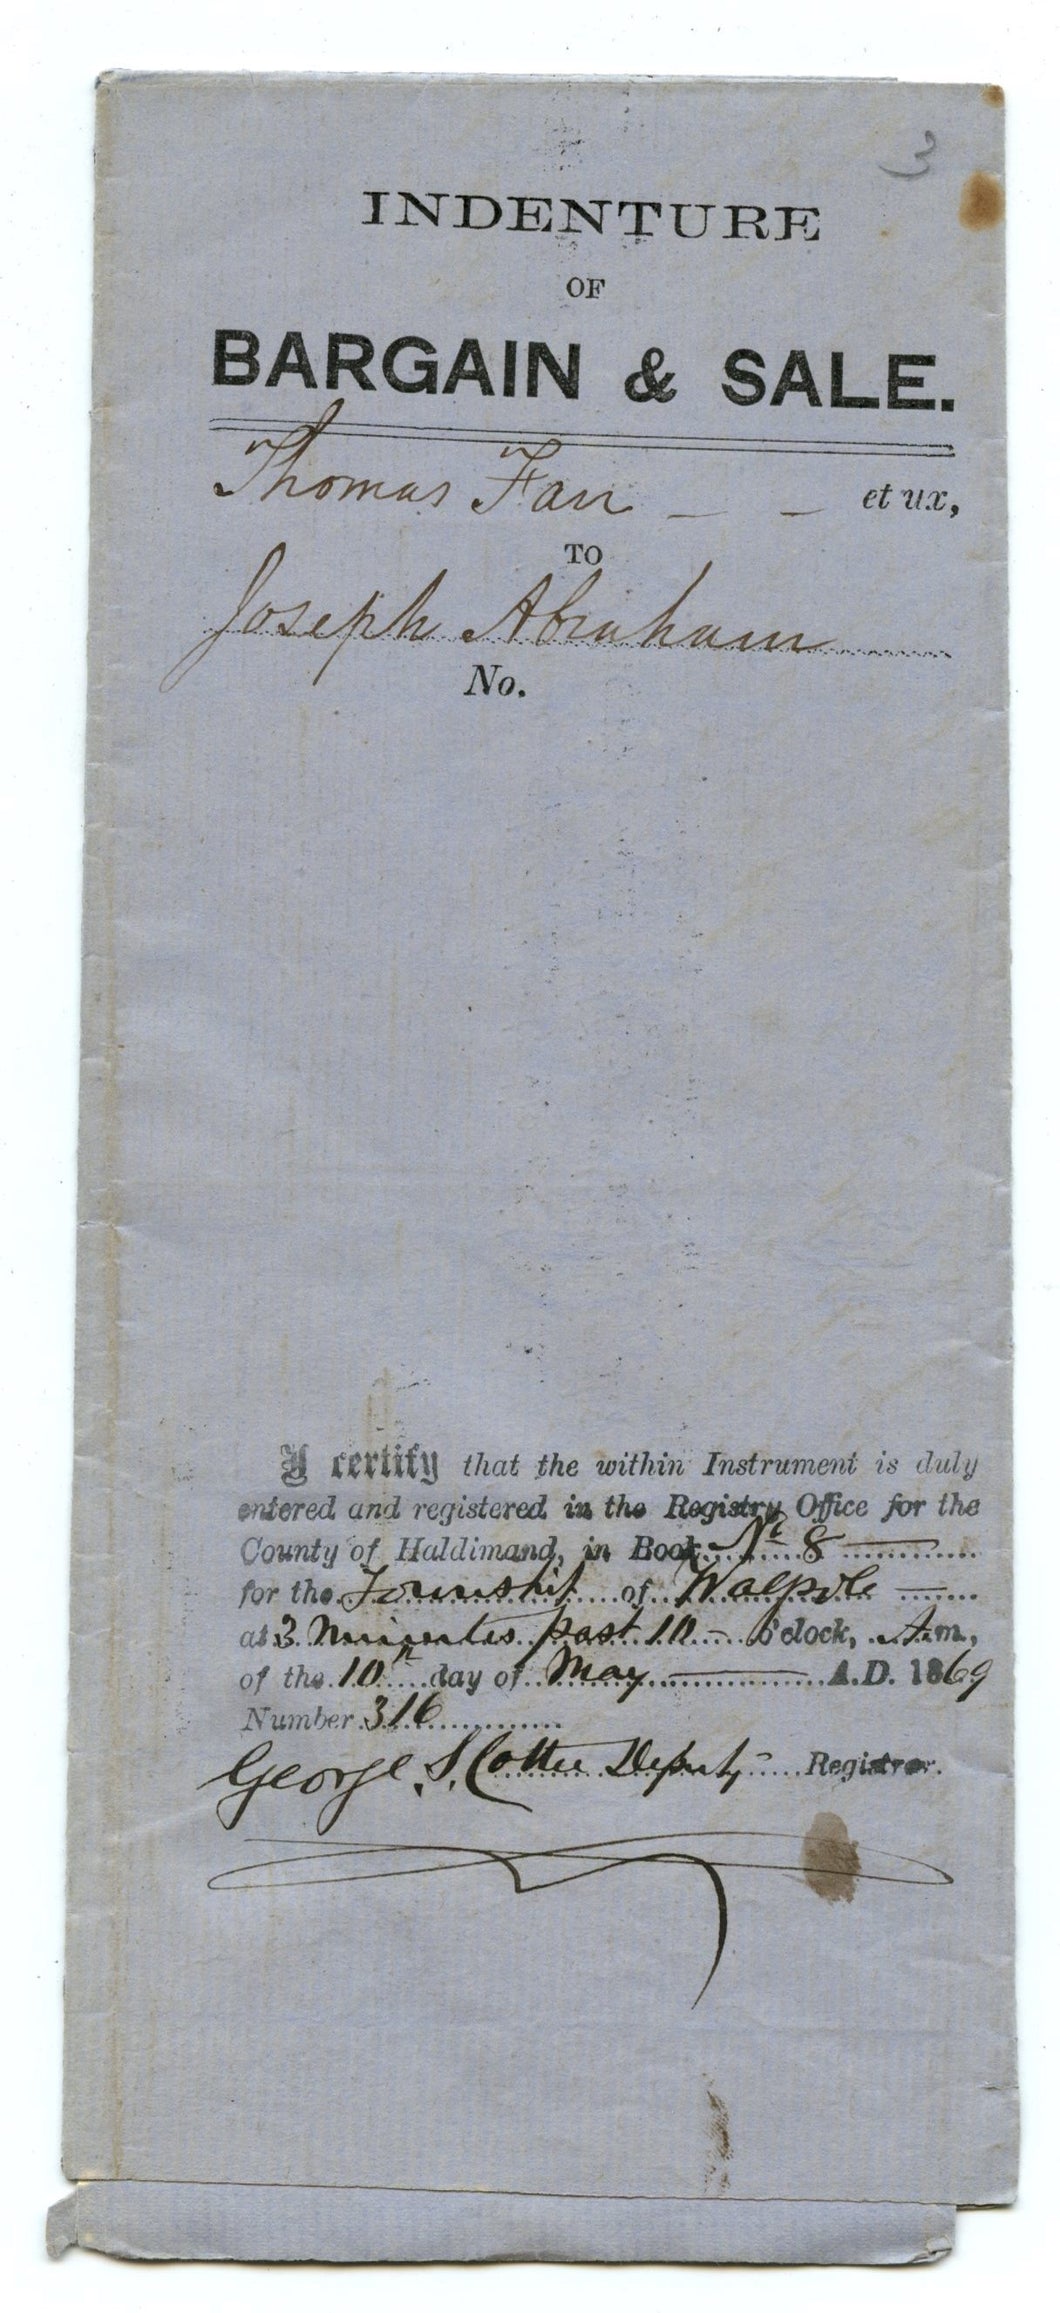 3
INDENTURE
OF
BARGAIN & SALE.
Thomas Farr — — et ux,
TO
Joseph Abraham
No.
I certify that the within Instrument is duly
entered and registered in the Registry Office for the
County of Haldimand, in Book No 8
for the Township of Walpole
at 3 Minutes past 10 o'clock, A.m.,
of the 10th day of May A.D. 1869
Number 316
George S. Cotter Deputy Registrar.